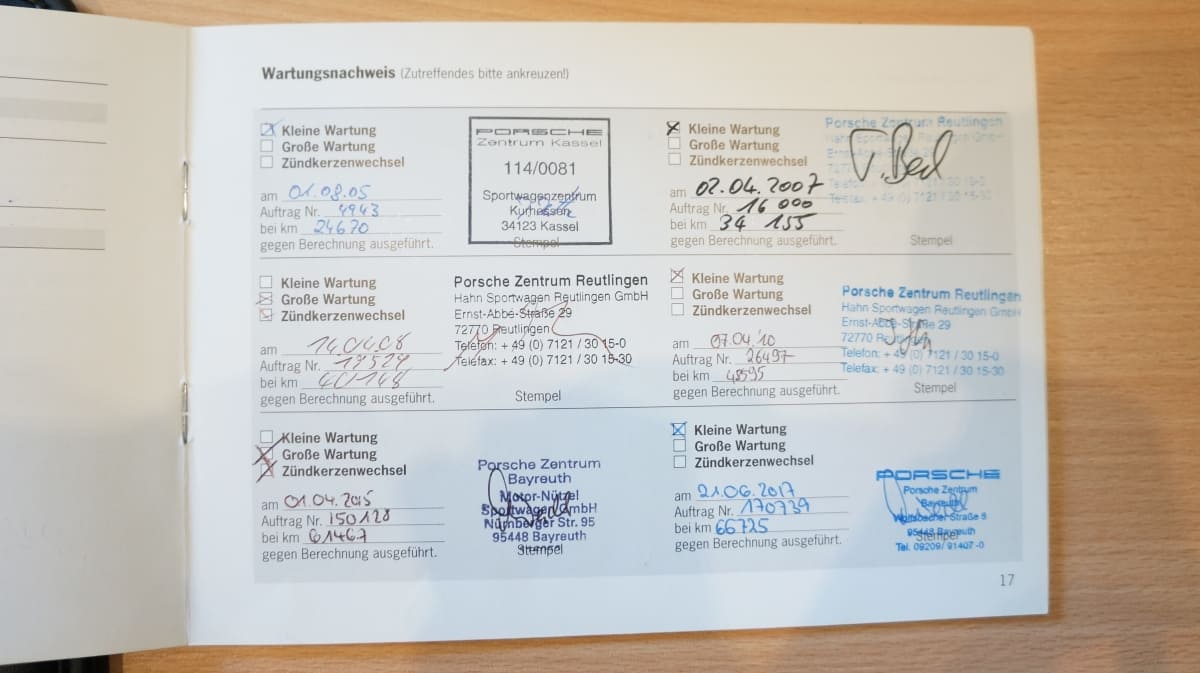 Wartungsnachweis (Zutreffendes bitte ankreuzen!)
Kleine Wartung
Große Wartung
Zündkerzenwechsel
am 01.08.05
Auftrag Nr. 4943
bei km 24670
gegen Berechnung ausgeführt.
PORSCHE
Zentrum Kassel
114/0081
Sportwagenzentrum
Kurhessen
34123 Kassel
Stempel
Kleine Wartung
Große Wartung
Zündkerzenwechsel
am 02.04.2007
Auftrag Nr. 16 000
bei km 34 155
gegen Berechnung ausgeführt.
Porsche Zentrum Reutlingen
Hahn Sportwagen Reutlingen GmbH
Telefax: + 49 (0) 7121 / 30 15-30
Stempel
Kleine Wartung
Große Wartung
Zündkerzenwechsel
am 14.04.08
Auftrag Nr. 19529
bei km 40148
gegen Berechnung ausgeführt.
Porsche Zentrum Reutlingen
Hahn Sportwagen Reutlingen GmbH
Ernst-Abbé-Straße 29
72770 Reutlingen
Telefon: + 49 (0) 7121 / 30 15-0
Telefax: + 49 (0) 7121 / 30 15-30
Stempel
Kleine Wartung
Große Wartung
Zündkerzenwechsel
am 07.04.'10
Auftrag Nr. 26497
bei km 48595
gegen Berechnung ausgeführt.
Porsche Zentrum Reutlingen
Hahn Sportwagen Reutlingen GmbH
Ernst-Abbé-Straße 29
72770
Telefon: + 49 (0) 7121 / 30 15-0
Telefax: + 49 (0) 7121 / 30 15-30
Stempel
Kleine Wartung
Große Wartung
Zündkerzenwechsel
am 01.04.2015
Auftrag Nr. 150128
bei km 61467
gegen Berechnung ausgeführt.
Porsche Zentrum
Bayreuth
Motor-Nützel
Sportwagen GmbH
Nürnberger Str. 95
95448 Bayreuth
Stempel
Kleine Wartung
Große Wartung
Zündkerzenwechsel
am 21.06.2017
Auftrag Nr. 170739
bei km 66725
gegen Berechnung ausgeführt.
PORSCHE
Porsche Zentrum
Bayreuth
95448 Bayreuth
Stempel
Tel. 09209/ 91407 -0
17